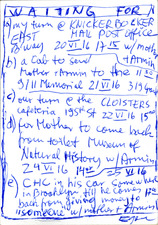 WAITING FOR
a) my turn @ KNICKERBOCKER
EAST MAIL POST OFFICE
B'way 20 VI 16 17 15 w/ mother
+ Armin
b) a Cab to send
Mother + Armin to the 11 50
9/11 Memorial 21 VI 16 3/19
c) our turn @ the CLOISTERS
cafeteria 22 VI 16 15
d) for Mother to come back
from toilet Museum of
Natural History w/ Armin
24 VI 16 14 25 VI 16
e) CHC in his car
in Brooklyn till he comes
back from giving money to
someone w/ mother + Armin